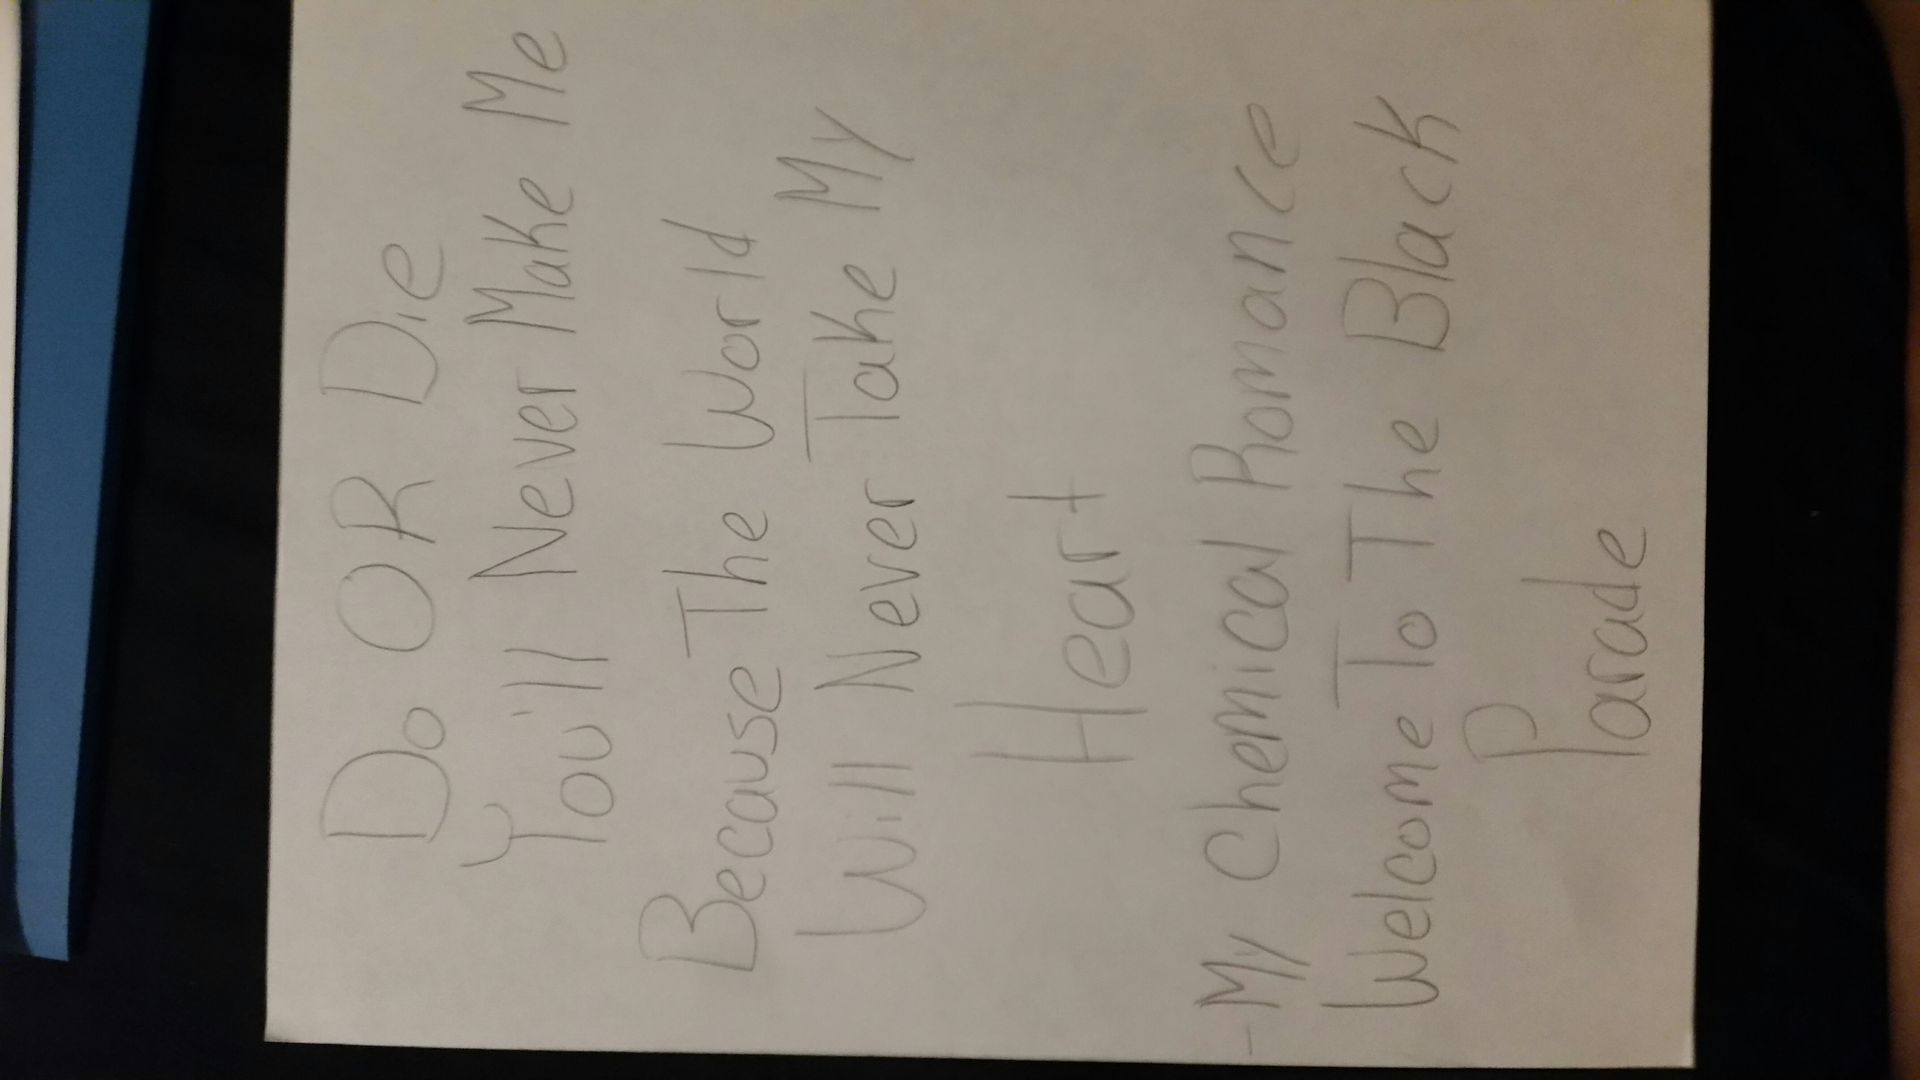 Do OR Die
You'll Never Make Me
Because The World
Will Never Take My
Heart
-My Chemical Romance
Welcome To The Black
Parade